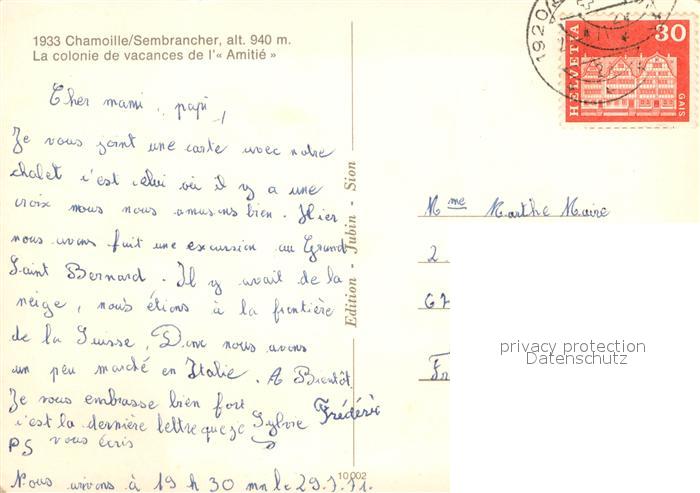 1933 Chamoille/Sembrancher, alt. 940 m.
La colonie de vacances de l'« Amitié »
Cher mami, papi,
Je vous joint une carte avec notre
chalet c'est celui où il y a une
croix nous nous amusons bien. Hier
nous avons fait une excursion au Grand
Saint Bernard. Il y avait de la
neige, nous étions à la frontière
de la Suisse, Donc nous avons
un peu marché en Italie. A Bientôt.
Je vous embrasse bien fort
c'est la dernière lettre que je Sylvie Frédéric
PS vous écris
Nous arrivons à 19 h 30 mn le 29.7.71.
10002
Edition - Jubin - Sion
1920
HELVETIA
30
GAIS
Mme Marthe Maire
2
67
Fr
privacy protection
Datenschutz